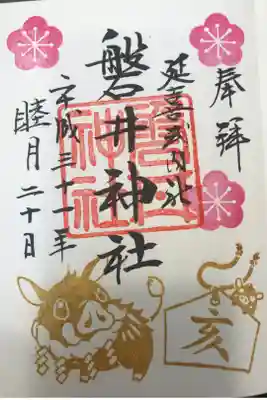 奉拝
延喜式内社
磐井神社
平成三十一年
睦月二十日
磐井神社
亥